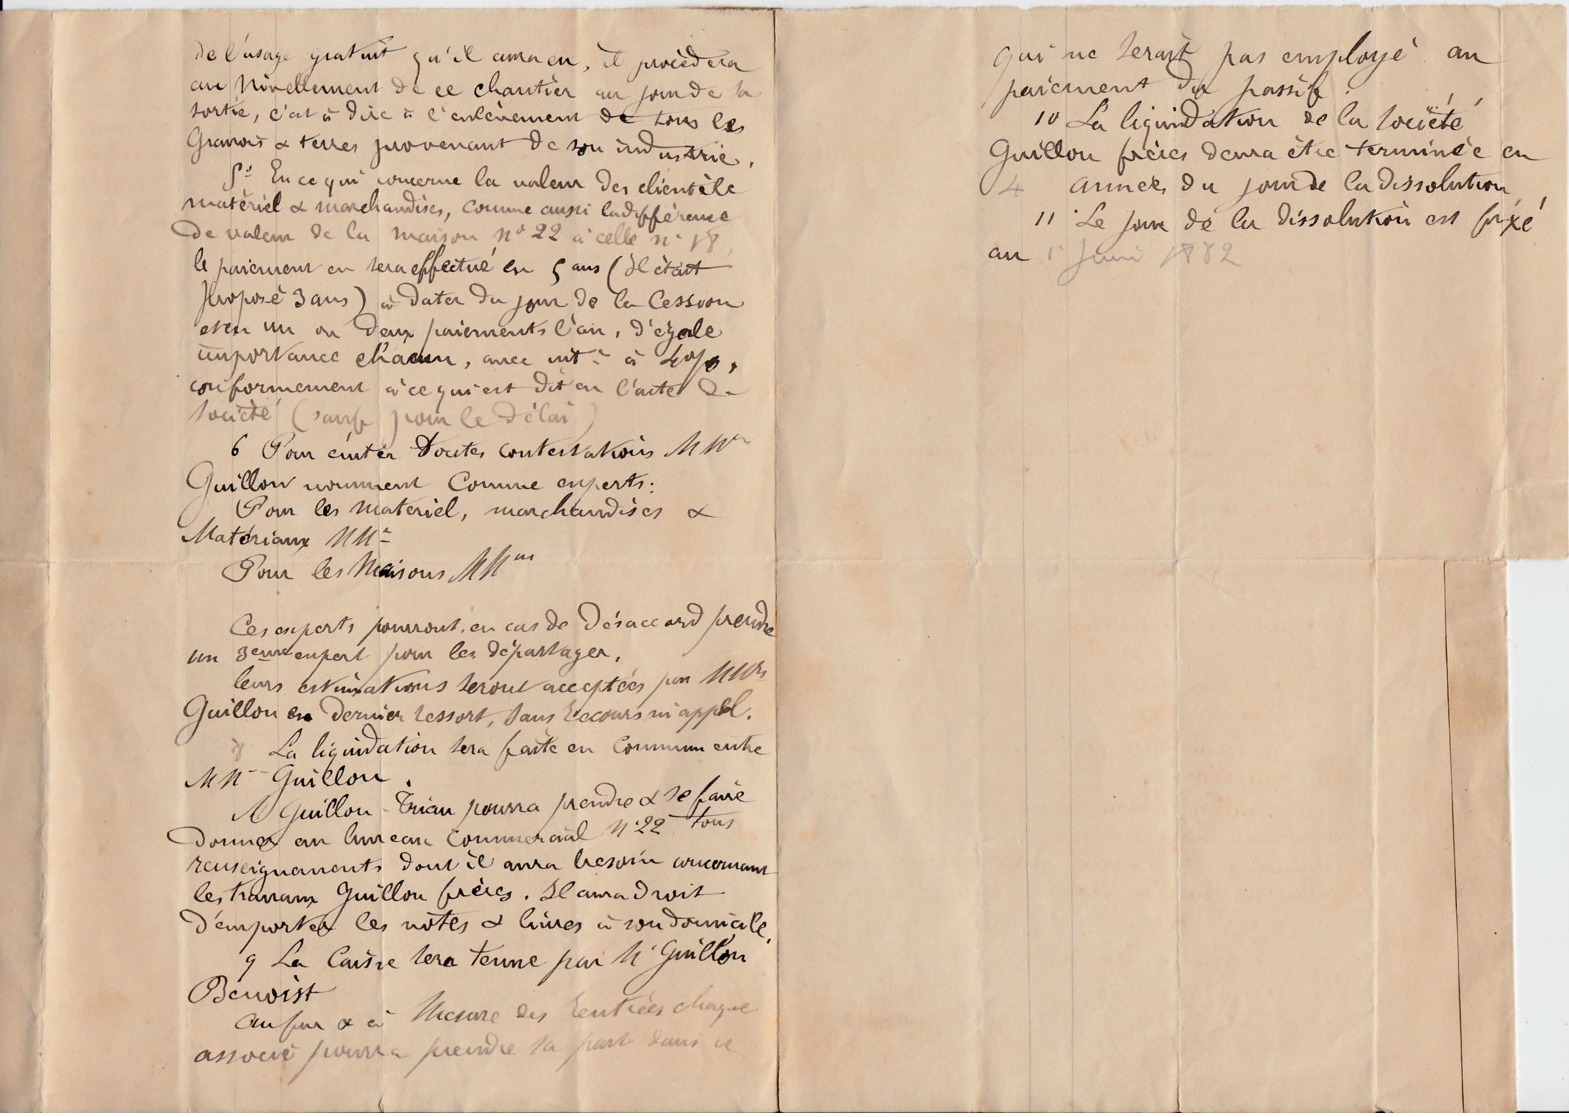 de l'usage gratuit qu'il aura eu, il procèdera
au Nivellement de ce chantier au jour de la
sortie, c'est à dire à l'enlèvement de tous les
Gravois & terres provenant de son industrie.
5° En ce qui concerne la valeur des clientèle
matériel & marchandises, comme aussi la différence
de valeur de la maison n° 22 à celle n° 18,
le paiement en sera effectué en 5 ans (il était
proposé 3 ans) à dater du jour de la Cession
et en un ou deux paiements l'an, d'égale
importance chacun, avec int. à 4%,
conformement à ce qui est dit en l'acte de
société (sauf pour le délai)
6 Pour éviter toutes contestations MMrs
Guillon nomment Comme experts:
Pour les materiel, marchandises &
Matériaux MM.
Pour les Maisons MM
Ces experts pourront, en cas de désaccord prendre
un 3eme expert pour les départager.
leurs estimations seront acceptées par MMrs
Guillon en dernier ressort, sans recours ni appel.
8 La liquidation sera faite en Commun entre
MM. Guillon.
M Guillon-Trian pourra prendre & se faire
donner au bureau commercial n° 22 tous
renseignements dont il aura besoin concernant
les travaux Guillon frères. Il aura droit
d'emporter les notes & livres à son domicile.
9 La Caisse sera tenue par Mr Guillon
Benoist
au fur & à Mesure des Rentrées chaque
associé pourra prendre sa part dans ce
qui ne serait pas employé au
paiement du passif.
10 La liquidation de la Société
Guillon frères devra être terminée en
4 années du jour de la dissolution
11 Le jour de la dissolution est fixé
au 1 Juin 1882